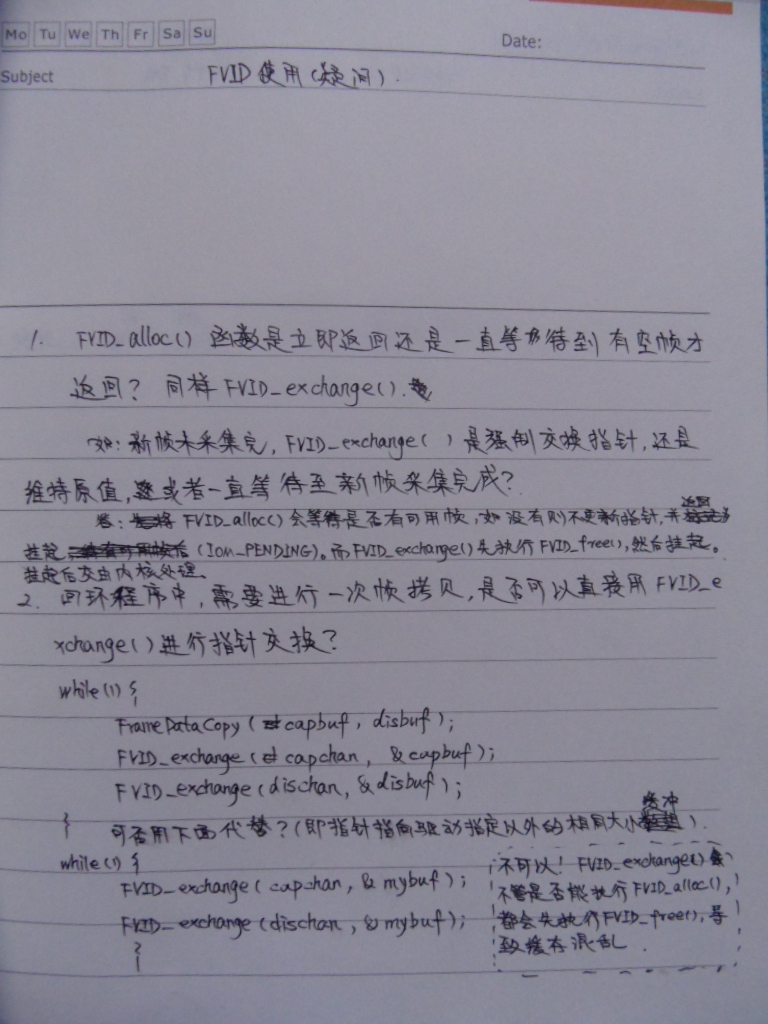 Mo Tu We Th Fr Sa Su
Date:
Subject
FVID 使用(疑问).
1. FVID_alloc() 函数是立即返回还是一直等待到有空帧才
返回? 同样FVID_exchange().
如:新帧未采集完, FVID_exchange( )是强制交换指针,还是
维持原值,或者一直等待至新帧采集完成?
返回
答: FVID_alloc()会等待是否有可用帧,如没有则不更新指针,并
挂起 (IOM_PENDING)。而FVID_exchange()先执行FVID_free(),然后挂起。
挂起后交由内核处理。
2. 回环程序中,需要进行一次帧拷贝,是否可以直接用FVID_e
xchange()进行指针交换?
while(1){
FrameDataCopy( capbuf, disbuf);
FVID_exchange( capchan, &capbuf);
FVID_exchange(dischan, &disbuf);
缓冲
} 可否用下面代替?(即指针指向驱动指定以外的相同大小 ).
while(1){
FVID_exchange( capchan, & mybuf);
FVID_exchange(dischan, & mybuf);
}
不可以! FVID_exchange()会
不管是否能执行FVID_alloc(),
都会先执行FVID_free(),导
致缓存混乱.